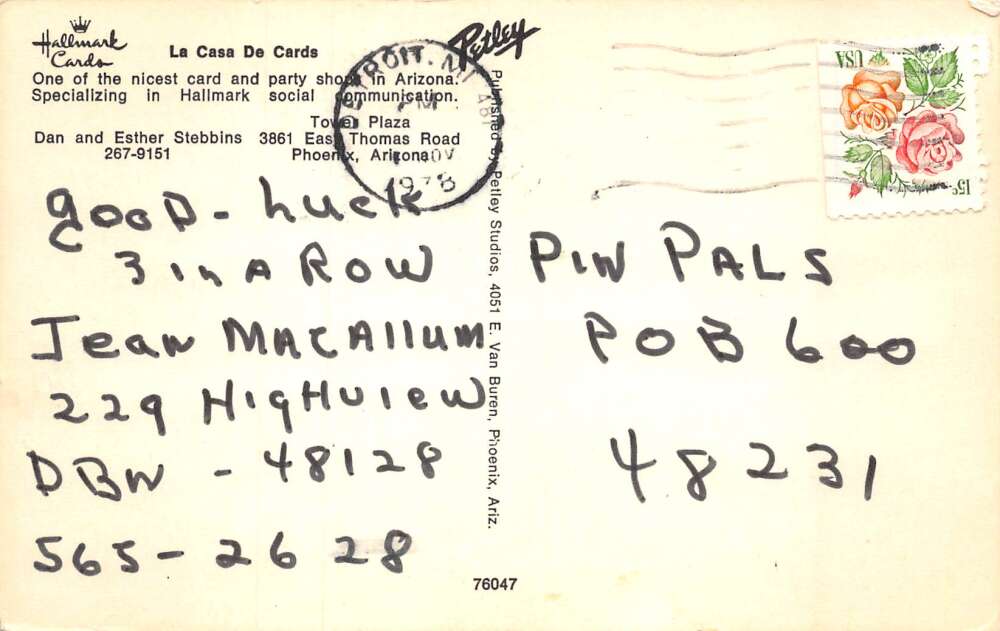 Hallmark
Cards
La Casa De Cards
One of the nicest card and party shops in Arizona.
Specializing in Hallmark social communication.
Tower Plaza
Dan and Esther Stebbins 3861 East Thomas Road
267-9151 Phoenix, Arizona
Petley
DETROIT, MI 481
PM
NOV
1978
USA
15c
Published by Petley Studios, 4051 E. Van Buren, Phoenix, Ariz.
gooD - Luck
3 in A ROW
Jean MACAllum
229 HigHview
DBN - 48128
565-2628
PIN PALS
POB 600
48231
76047